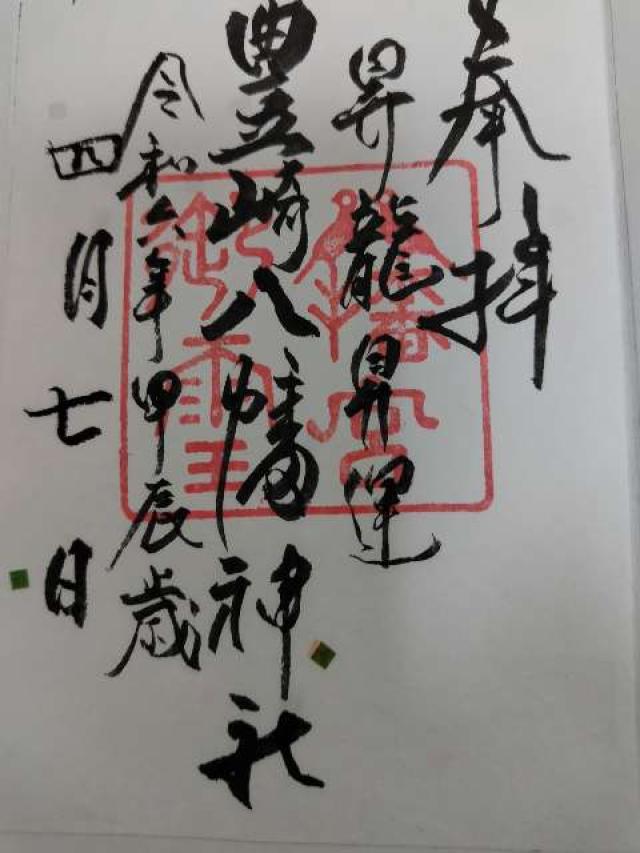 奉拝
昇龍昇運
豊崎八幡神社
令和六年甲辰歳
四月七日